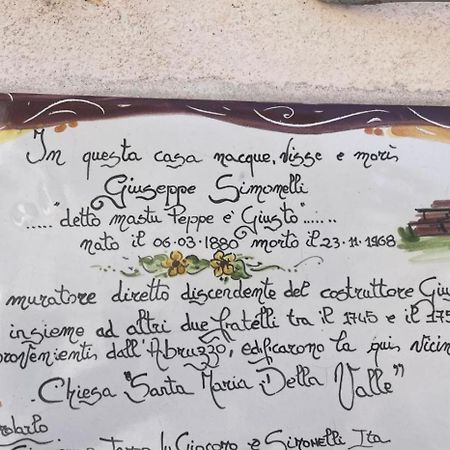 In questa casa nacque, visse e morìs
Giuseppe Simonelli
....."detto mastu Peppe e' Giusto"......
nato il 06.03.1880 mortò il 23.11.1968
muratore diretto discendente del costruttore Giu
insieme ad altri due fratelli tra il 1745 e il 175
provenientis dall'Abruzzo, edificarono la quis vicin
Chiesa "Santa Maria Della Valle"
Giacomo e Simonelli Ita